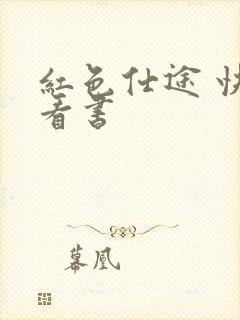 紅色仕途 快
看書
幕凰